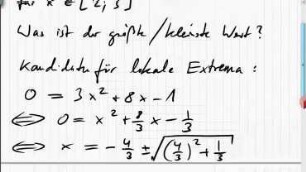 für x ∈ [-2, 3]
Was ist der größte/kleinste Wert?
Kandidaten für lokale Extrema:
0 = 3x² + 8x - 1
⇔ 0 = x² + 8/3 x - 1/3
⇔ x = - 4/3 ± √((4/3)² + 1/3)